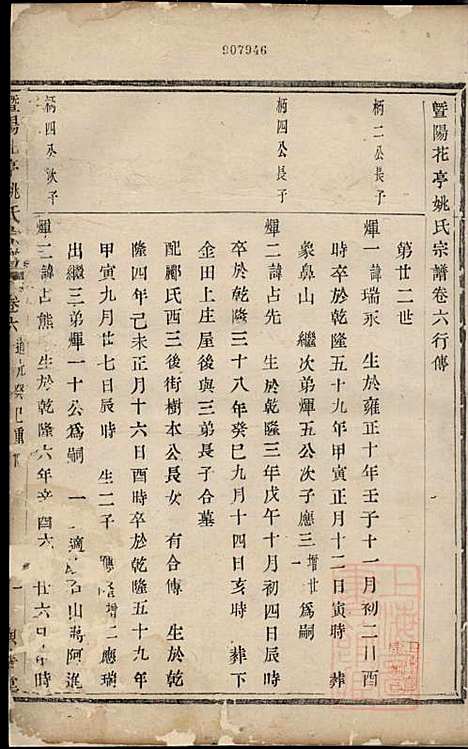 907946
暨陽花亭姚氏宗譜卷六行傳
第廿二世
柄二公長子
輝一諱瑞承 生於雍正十年壬子十一月初二日酉
時卒於乾隆五十九年甲寅正月十二日寅時 葬
象鼻山 繼次弟輝五公次子應三增廿一為嗣
柄四公長子
輝二諱占先 生於乾隆三年戊午十月初四日辰時
卒於乾隆三十八年癸巳九月十四日亥時 葬下
金田上庄屋後與三弟長子合墓
配酈氏酉三後街樹本公長女 有合傳 生於乾
隆四年己未正月十六日酉時卒於乾隆五十九年
甲寅九月廿七日辰時 生二子 增二應瑞
出繼三弟輝一十公為嗣 一 適 石山蔣阿進
柄四公次子
輝三諱占熊 生於乾隆六年辛酉六 廿六日 時
暨陽花亭姚氏宗譜 卷六